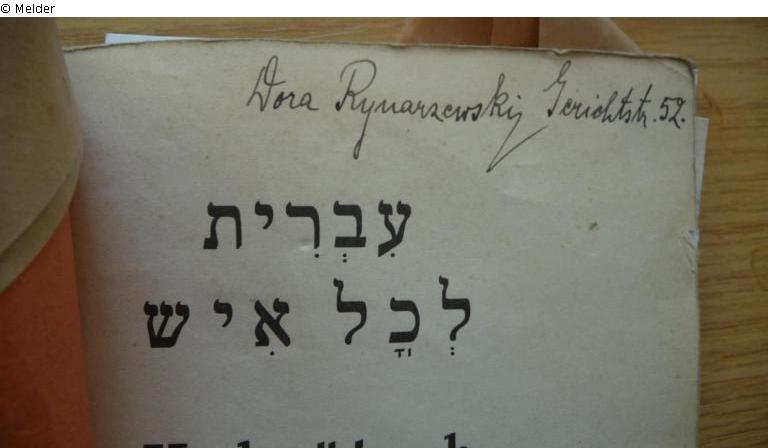 © Melder
Dora Rynarzewski, Gerichtstr. 52.
עִבְרִית
לְכָל אִישׁ